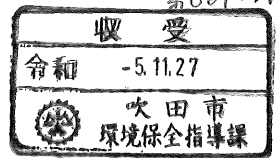 収受
令和 -5.11.27
吹田市
環境保全指導課